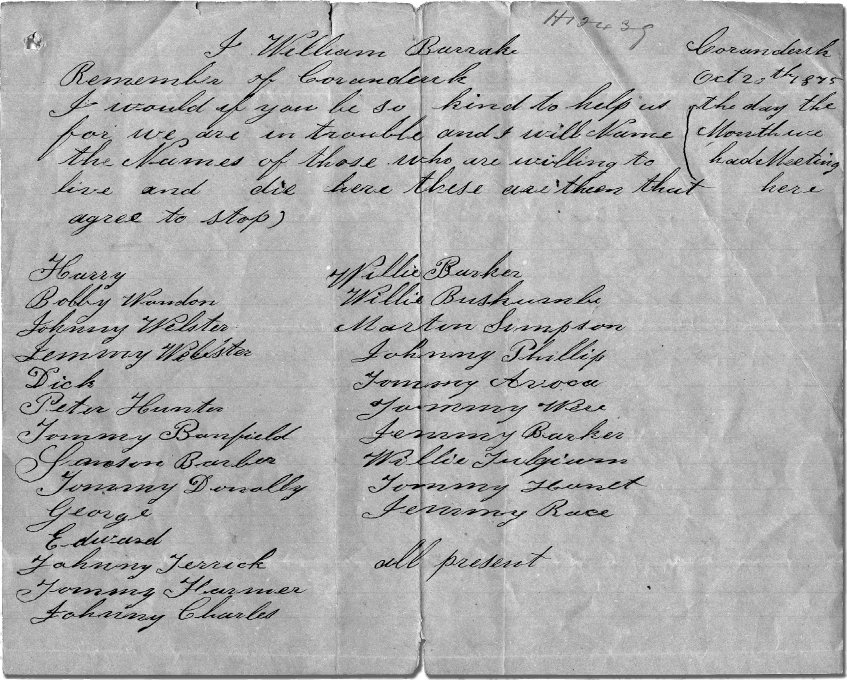 H12439
I William Barrake
Remember of Coranderrk
I would if you be so kind to help us
for we are in trouble and I will Name
the Names of those who are willing to
live and die here these are them that
agree to stop)
Coranderrk
Oct 1875
the day the
Month we
had Meeting
here
Harry
Bobby Wandon
Johnny Welster
Jemmy Webster
Dick
Peter Hunter
Tommy Banfield
Samson Barber
Tommy Donolly
George
Edward
Johnny Terrick
Tommy Harmer
Johnny Charles
Willie Barker
Willie
Martin Simpson
Johnny Phillip
Tommy Avoca
Jemmy Barker
Willie
Tommy
Jemmy Race
all present